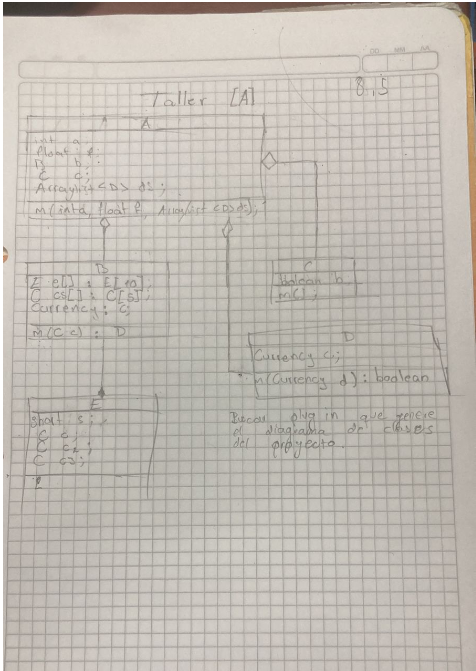 DD MM AA
8,5
Taller [A]
A
int a
float f;
B b;
C c;
ArrayList <D> ds;
m(int a, float f, ArrayList <D> ds);
B
E e[] : E[20];
C cs[] : C[5];
Currency : c;
m(C c) : D
C
boolean b
m();
D
Currency c;
m(Currency d) : boolean
E
short : s;
C c;
C c2;
C c3;
Buscar plug in que genere
el diagrama de clases
del proyecto.